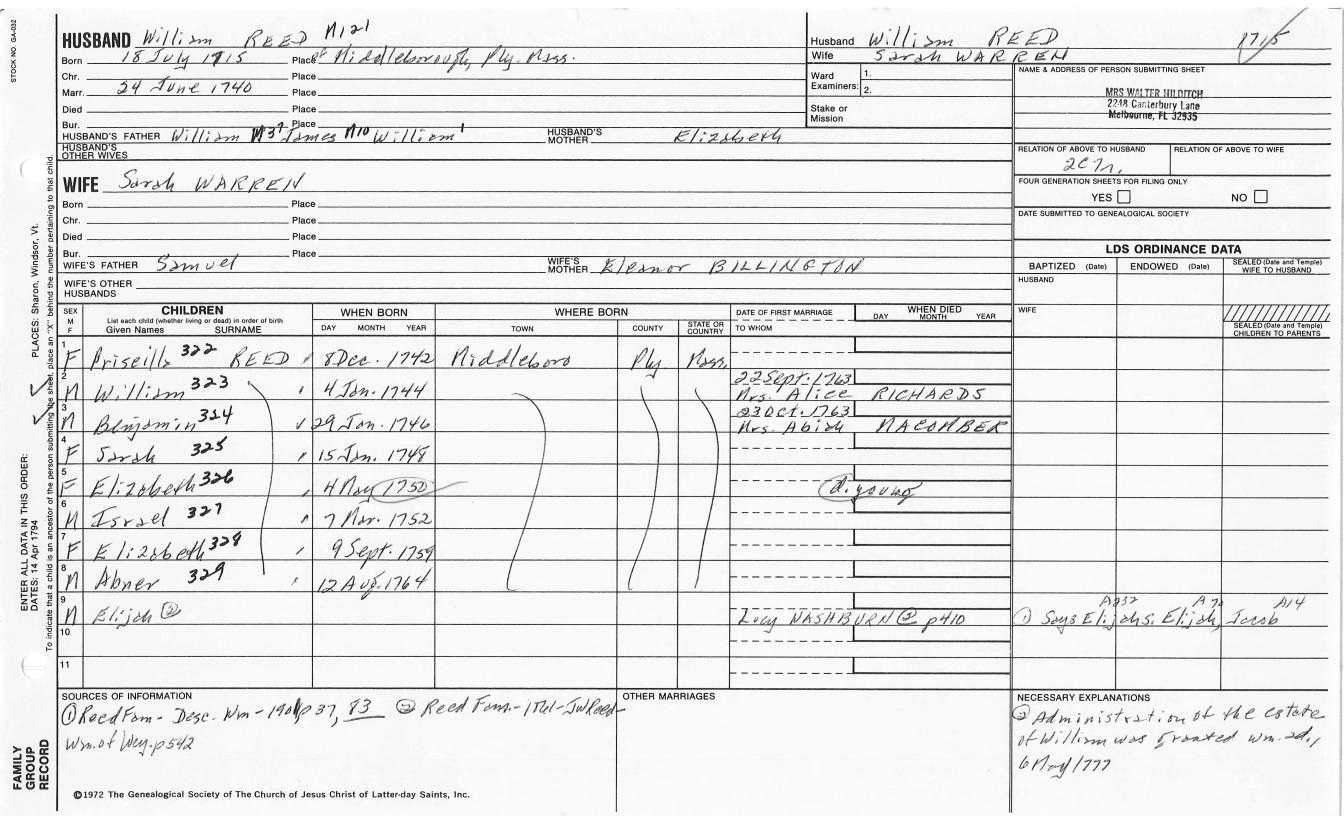 STOCK NO. GA-032
HUSBAND William REED M121
Born 18 July 1715 Place of Middleborough, Ply. Mass.
Chr. Place
Marr. 24 June 1740 Place
Died Place
Bur. Place
HUSBAND'S FATHER William M37 James M10 William1 HUSBAND'S MOTHER Elizabeth
HUSBAND'S OTHER WIVES
Husband William REED 1715
Wife Sarah WARREN
Ward Examiners: 1.
2.
Stake or Mission
NAME & ADDRESS OF PERSON SUBMITTING SHEET
MRS WALTER HILDITCH
2248 Canterbury Lane
Melbourne, FL 32935
RELATION OF ABOVE TO HUSBAND RELATION OF ABOVE TO WIFE
FOUR GENERATION SHEETS FOR FILING ONLY
YES NO
DATE SUBMITTED TO GENEALOGICAL SOCIETY
WIFE Sarah WARREN
Born Place
Chr. Place
Died Place
Bur. Place
WIFE'S FATHER Samuel WIFE'S MOTHER Eleanor BILLINGTON
WIFE'S OTHER HUSBANDS
LDS ORDINANCE DATA
BAPTIZED (Date) ENDOWED (Date) SEALED (Date and Temple) WIFE TO HUSBAND
HUSBAND
WIFE
SEALED (Date and Temple) CHILDREN TO PARENTS
SEX M F CHILDREN WHEN BORN WHERE BORN DATE OF FIRST MARRIAGE WHEN DIED
List each child (whether living or dead) in order of birth
Given Names SURNAME DAY MONTH YEAR TOWN COUNTY STATE OR COUNTRY TO WHOM DAY MONTH YEAR
1 F Priscilla 322 REED 8 Dec. 1742 Middleboro Ply Mass.
2 M William 323 4 Jan. 1744 22 Sept. 1763 Mrs. Alice RICHARDS
3 M Benjamin 324 29 Jan. 1746 23 Oct. 1763 Mrs. Abiah MACOMBER
4 F Sarah 325 15 Jan. 1748
5 F Elizabeth 326 4 May 1750 d. young
6 M Israel 327 7 Mar. 1752
7 F Elizabeth 328 9 Sept. 1759
8 M Abner 329 12 Aug. 1764
9 M Elijah ② Lucy WASHBURN ② p410 ① Says Elijah5, Elijah, Jacob A232 A70 A14
10
11
SOURCES OF INFORMATION
① Reed Fam- Desc. Wm-1901 p37, 83 ② Reed Fam.-1861-JWReed-
Wm. of Wey. p542
OTHER MARRIAGES
NECESSARY EXPLANATIONS
② Administration of the estate
of William was granted Wm. 2d.,
6 May 1777
©1972 The Genealogical Society of The Church of Jesus Christ of Latter-day Saints, Inc.
FAMILY GROUP RECORD
ENTER ALL DATA IN THIS ORDER:
DATES: 14 Apr 1794
PLACES: Sharon, Windsor, Vt.
To indicate that a child is an ancestor of the person submitting the sheet, place an "X" behind the number pertaining to that child.